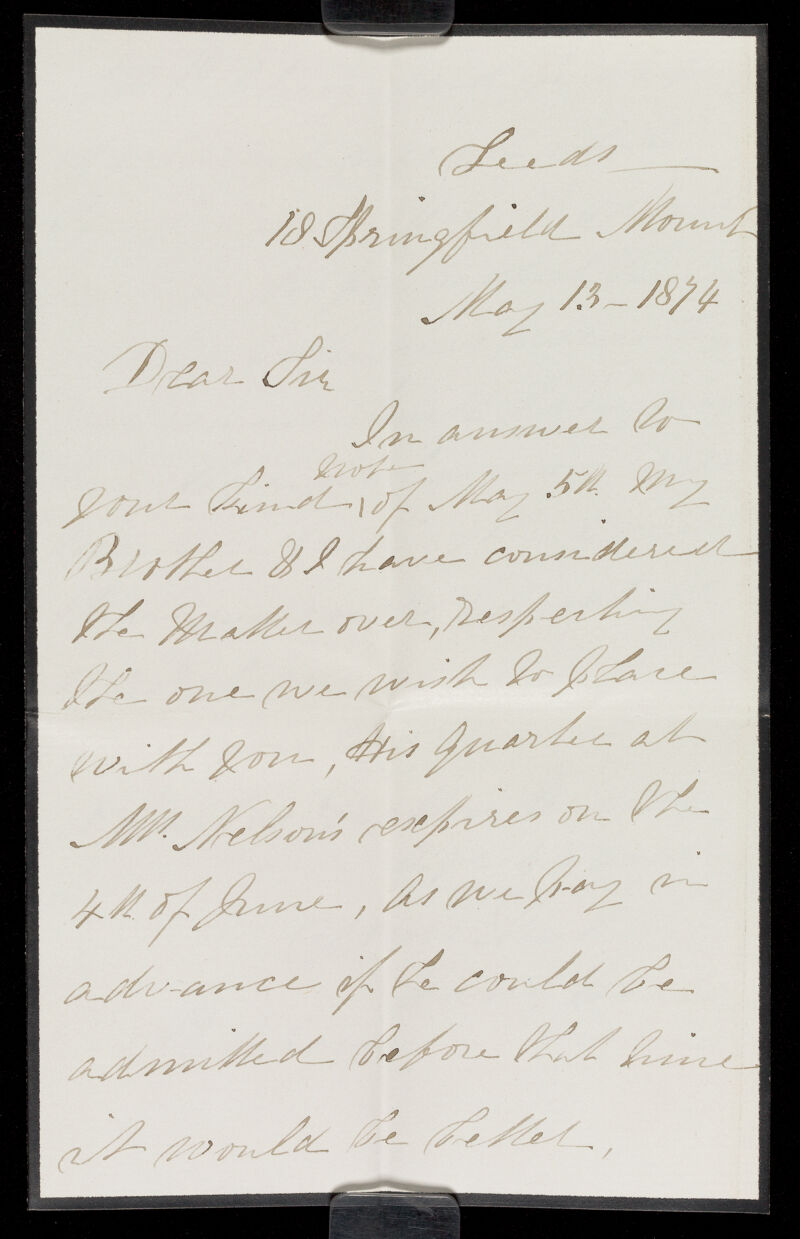 Leeds
18 Springfield Mount
May 13 - 1874
Dear Sir
In answer to
note
your kind of May 5th. My
Brother & I have considered
the matter over, respecting
the one we wish to place
with you, His quarter at
Mrs. Nelson's expires on the
4th of June, as we pay in
advance if he could be
admitted before that time
it would be better.